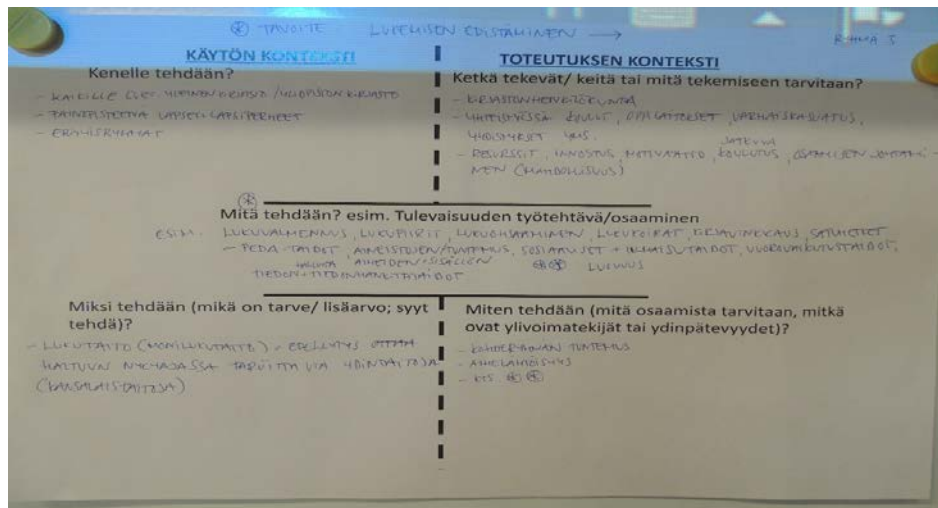 ⊛ TAVOITE LUKEMISEN EDISTÄMINEN →
RYHMÄ 3
KÄYTÖN KONTEKSTI
Kenelle tehdään?
- KAIKILLE YLEINEN KIRJASTO / YLIOPISTON KIRJASTO
- PAINOPISTEENÄ LAPSET, LAPSIPERHEET
- ERITYISRYHMÄT
TOTEUTUKSEN KONTEKSTI
Ketkä tekevät/ keitä tai mitä tekemiseen tarvitaan?
- KIRJASTON HENKILÖKUNTA
- YHTEISTYÖSSÄ KOULUT, OPPILAITOKSET, VARHAISKASVATUS,
YHDISTYKSET YMS.
- RESURSSIT, INNOSTUS, MOTIVAATIO, JATKUVA KOULUTUS, OSAAMISEN JOHTAMI-
NEN (MAHDOLLISUUS)
⊛
Mitä tehdään? esim. Tulevaisuuden työtehtävä/osaaminen
ESIM. LUKUVALMENNUS, LUKUPIIRIT, LUKUOHJAAMINEN, LUKUKOIRAT, KIRJAVINKKAUS, SATUHETKET
- PEDA-TAIDOT, AINEISTOJEN TUNTEMUS, SOSIAALISET + ILMAISUTAIDOT, VUOROVAIKUTUSTAIDOT,
AIHEIDEN + SISÄLLÖN ⊛⊛
TIEDON + TIEDONHANKINTATAIDOT
Miksi tehdään (mikä on tarve/ lisäarvo; syyt
tehdä)?
- LUKUTAITO (MONILUKUTAITO) - EDELLYTYS OTTAA
HALTUUN NYKYAJASSA TARVITTAVIA YDINTAITOJA
(KANSALAISTAITOJA)
Miten tehdään (mitä osaamista tarvitaan, mitkä
ovat ylivoimatekijät tai ydinpätevyydet)?
- KOHDERYHMÄN TUNTEMUS
- KTS. ⊛⊛